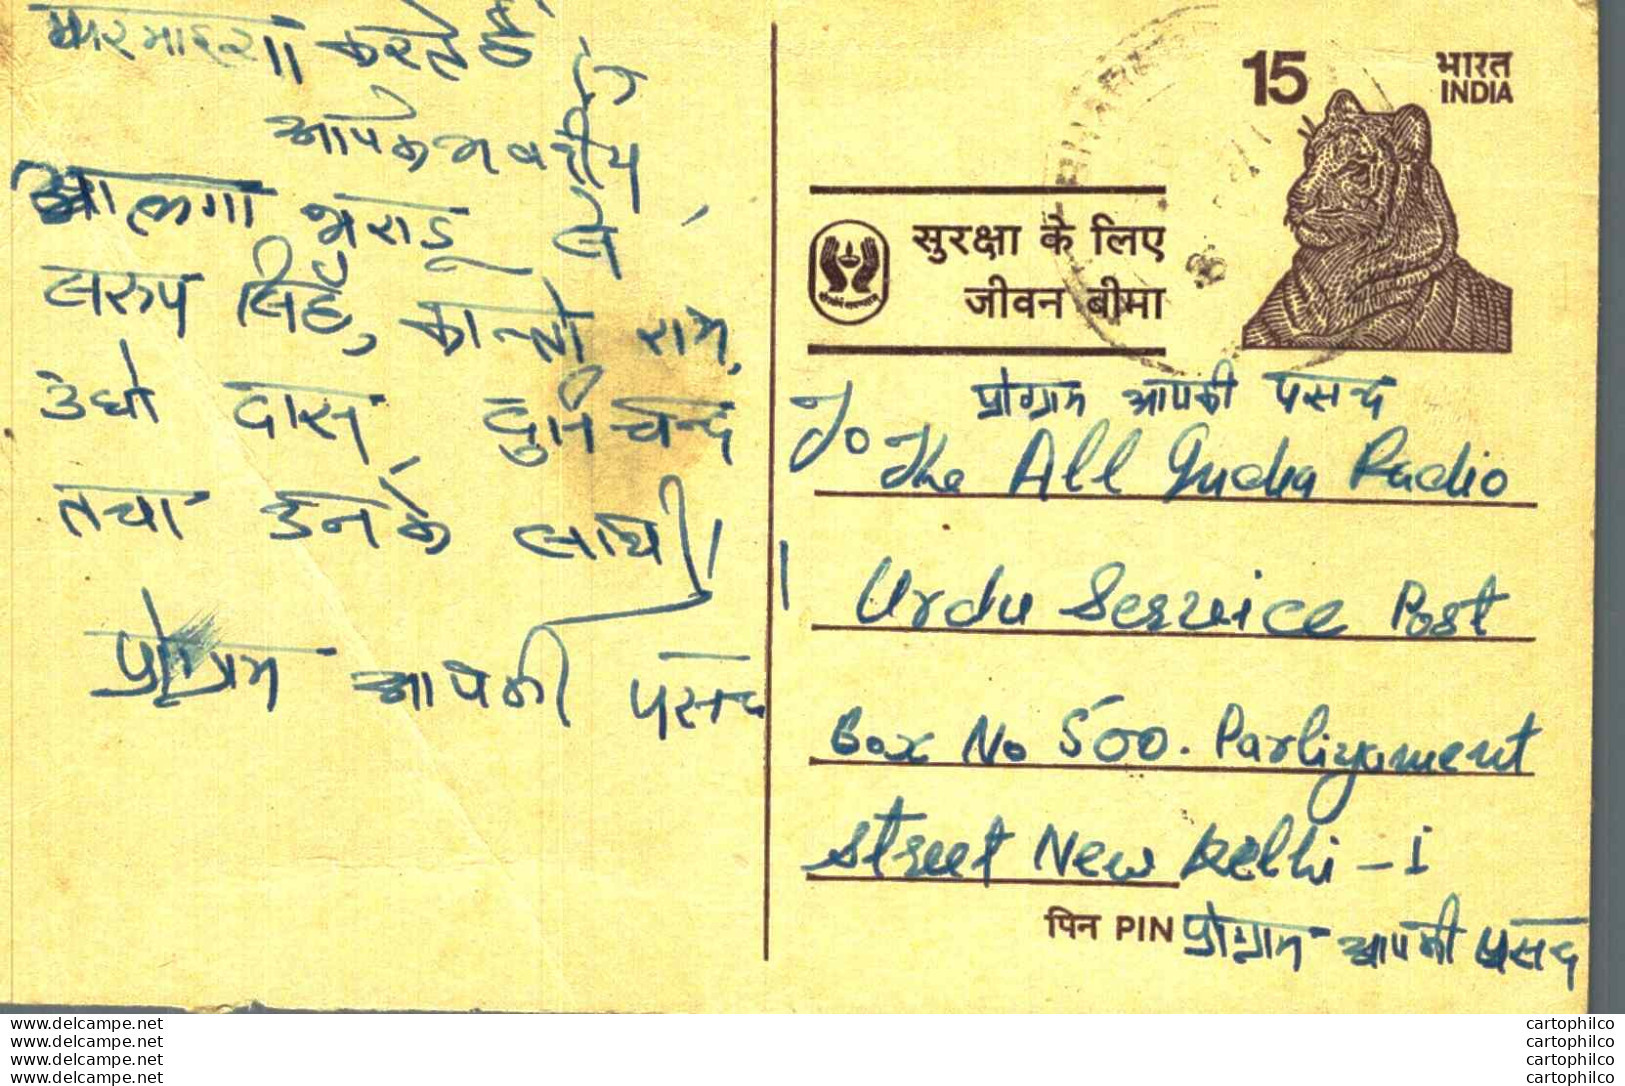 फरमाइश करते हैं
आपके भवदीय
आलगा भराडू से
सरुप सिहँ, कान्शी राम,
उधो दास दुर्गचन्द
तथा उनके साथी।
प्रोग्राम आपकी पसन्द
15
भारत
INDIA
सुरक्षा के लिए
जीवन बीमा
प्रोग्राम आपकी पसन्द
To The All India Radio
Urdu Service Post
Box No 500. Parliyament
Street New Delhi - 1
पिन PIN प्रोग्राम आपकी पसन्द
www.delcampe.net
www.delcampe.net
www.delcampe.net
www.delcampe.net
cartophilco
cartophilco
cartophilco
cartophilco